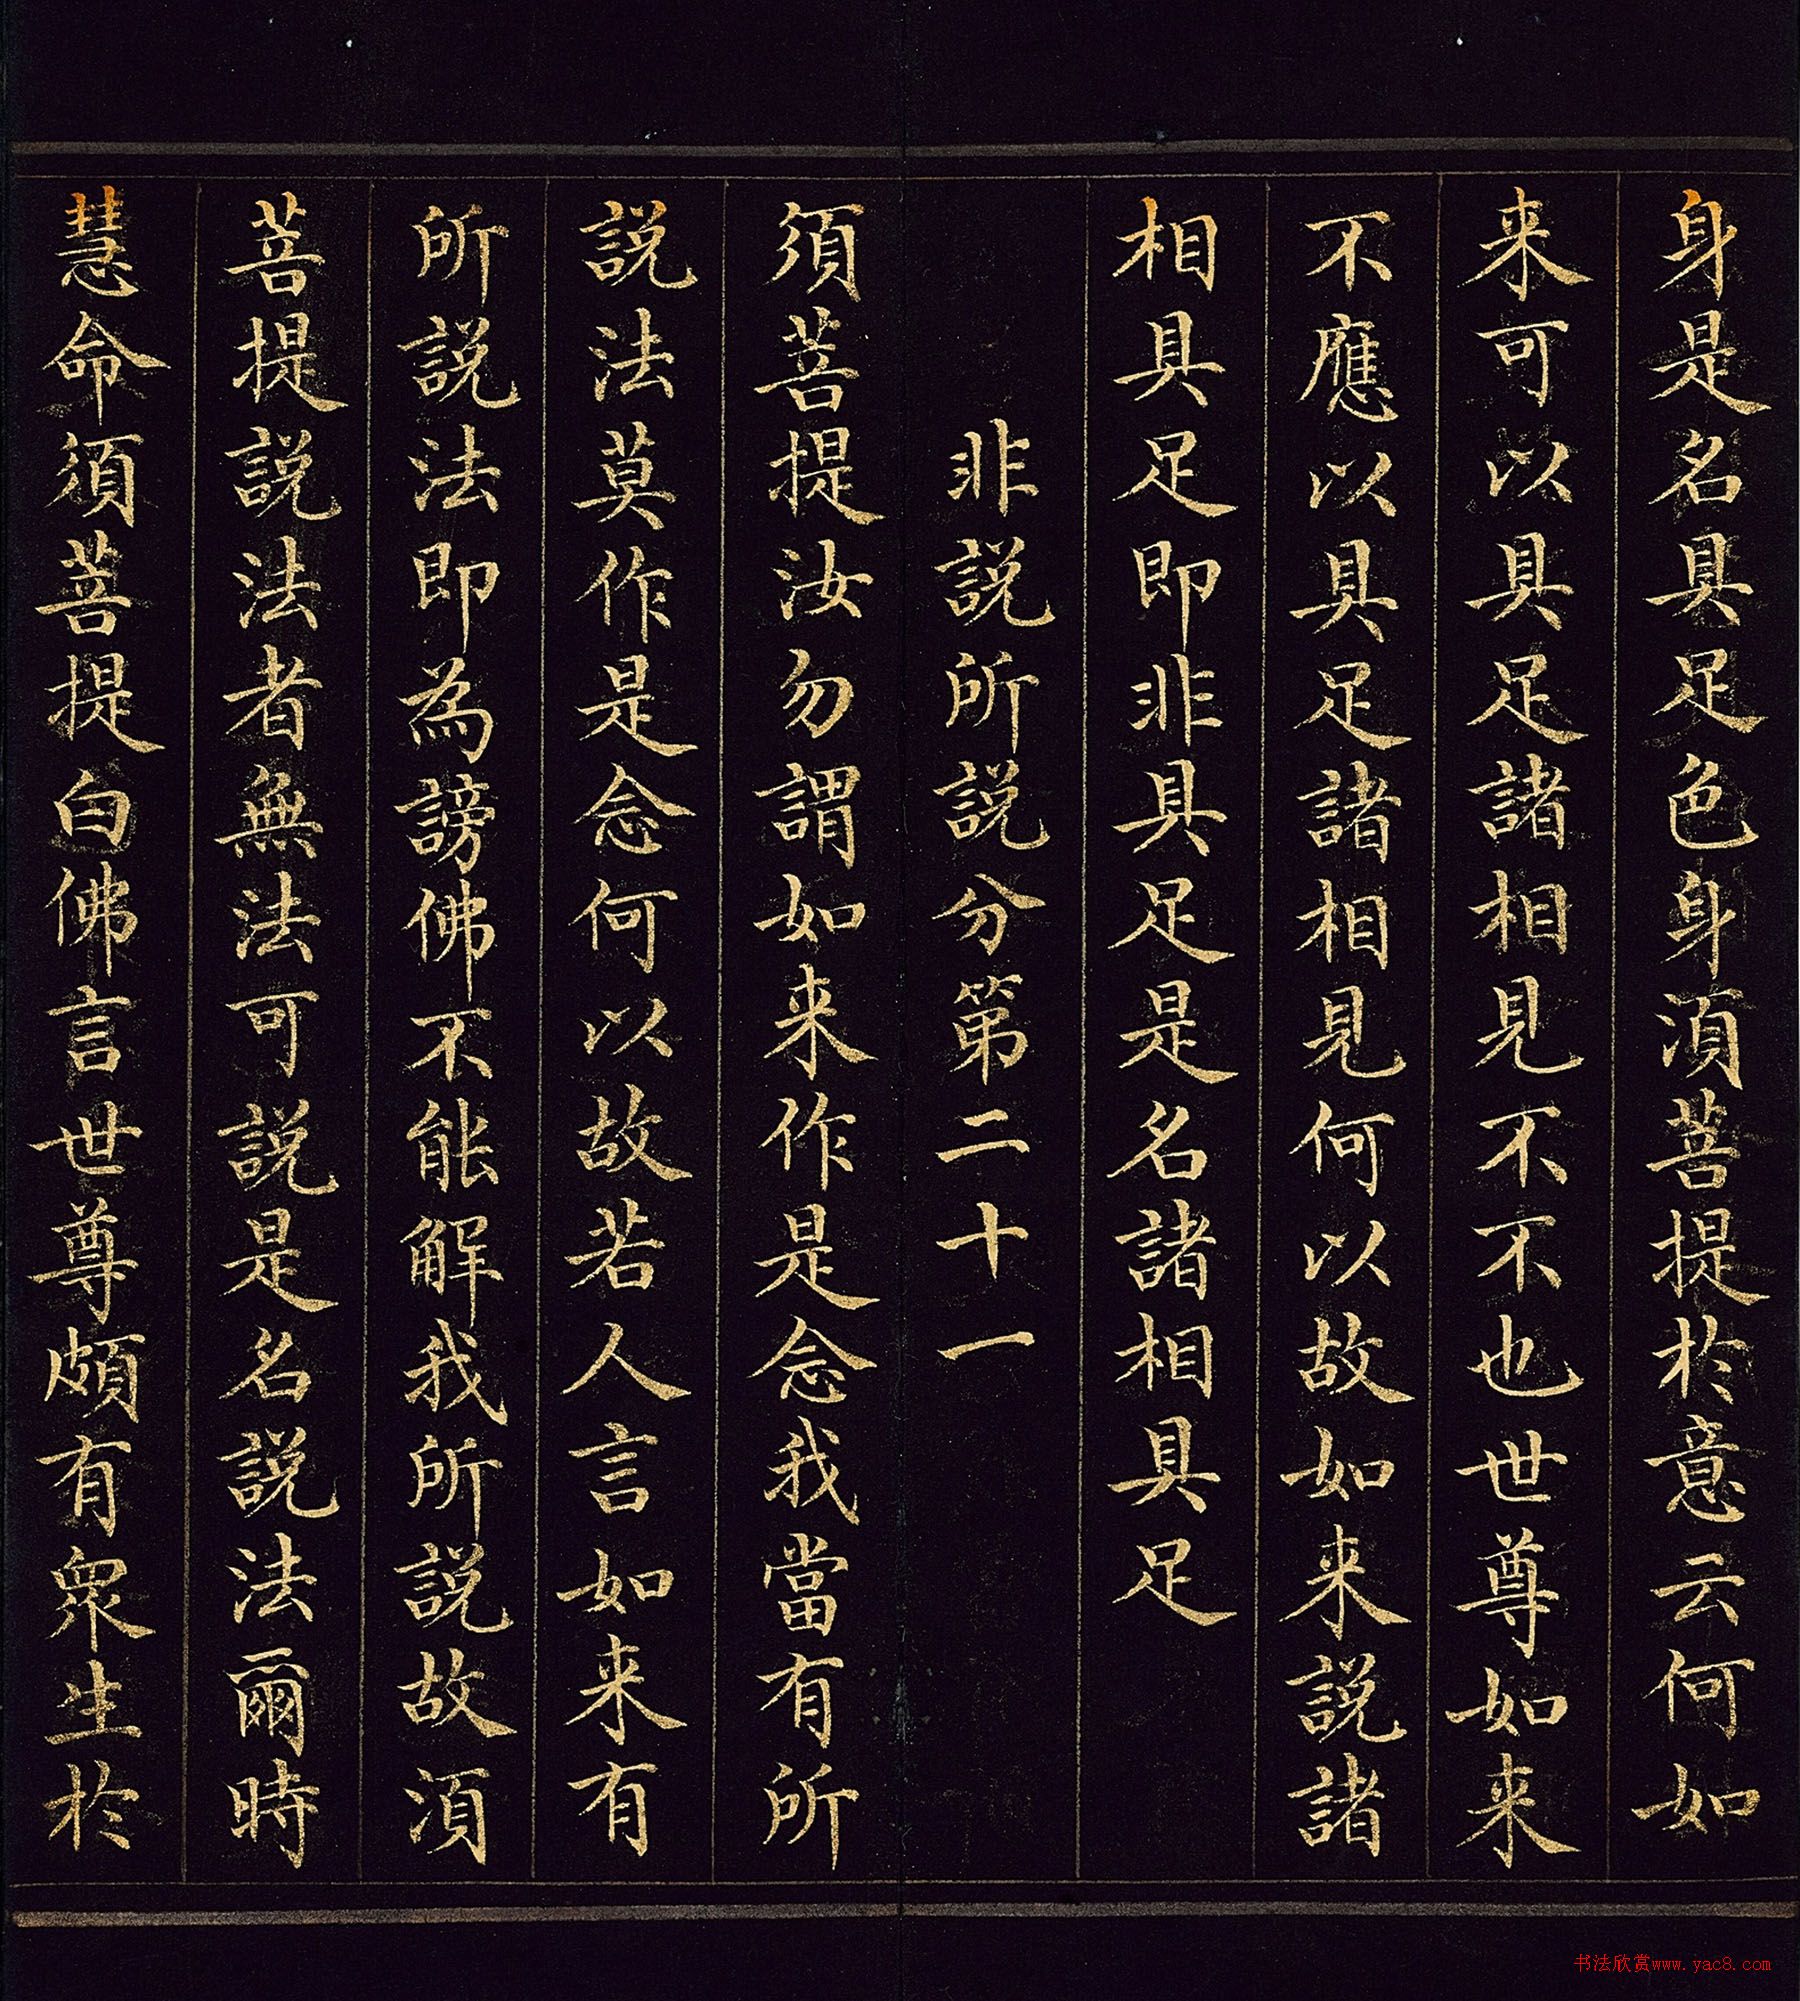 身是名具足色身湏菩提於意云何如
来可以具足諸相見不不也世尊如来
不應以具足諸相見何以故如来説諸
相具足即非具足是名諸相具足
非説所説分第二十一
須菩提汝勿謂如来作是念我當有所
説法莫作是念何以故若人言如来有
所説法即為謗佛不能解我所説故湏
菩提説法者無法可説是名説法爾時
慧命須菩提白佛言世尊頗有眾生於
书法欣赏www.yac8.com